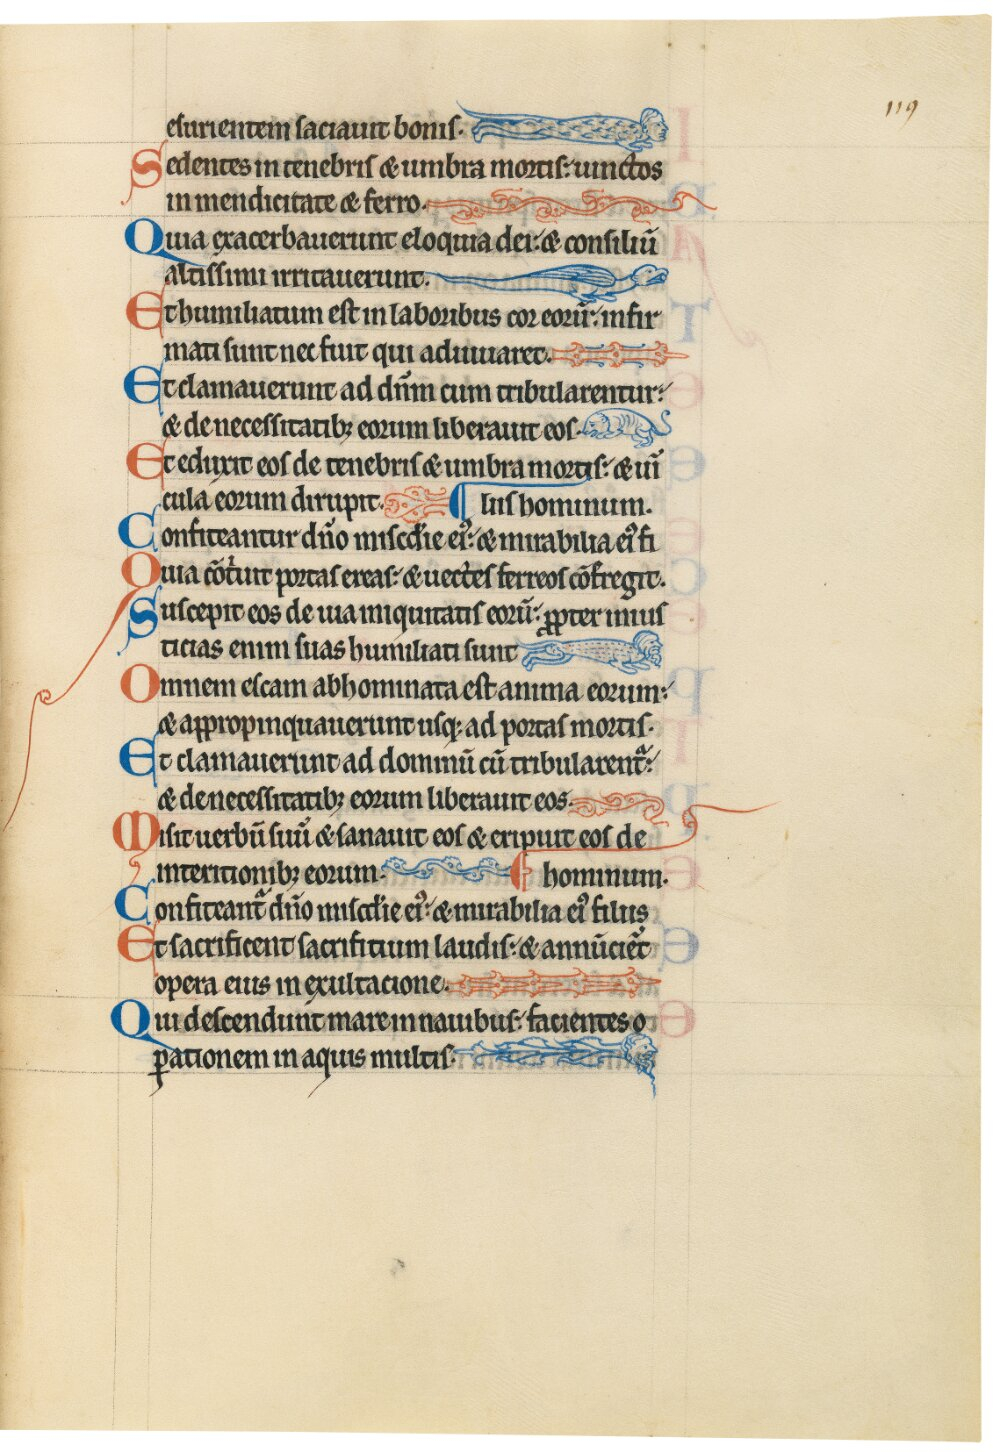 119
esurientem saciauit bonis.
Sedentes in tenebris & umbra mortis: uinctos
in mendicitate & ferro.
Quia exacerbauerunt eloquia dei: & consiliū
altissimi irritauerunt.
Et humiliatum est in laboribus cor eorū: infir
mati sunt nec fuit qui adiuuaret.
Et clamauerunt ad dn̄m cum tribularentur:
& de necessitatibꝫ eorum liberauit eos.
Et eduxit eos de tenebris & umbra mortis: & uī
cula eorum dirupit. liis hominum.
Confiteantur dn̄o misc̄die eiꝰ: & mirabilia eiꝰ fi
Quia cōt̄uit portas ereas: & uectes ferreos cōfregit.
Suscepit eos de uia iniquitatis eorū: ꝓpter inius
ticias enim suas humiliati sunt
Omnem escam abhominata est anima eorum:
& appropinquauerunt usqꝫ ad portas mortis.
Et clamauerunt ad dominū cū tribularent᷑:
& de necessitatibꝫ eorum liberauit eos.
Misit uerbū suū & sanauit eos & eripuit eos de
interitionibꝫ eorum. hominum.
Confiteant᷑ dn̄o misc̄die eiꝰ: & mirabilia eiꝰ filiis
Et sacrificent sacrifitium laudis: & annūciēt
opera eius in exultacione.
Qui descendunt mare in nauibus: facientes o
ꝑationem in aquis multis.